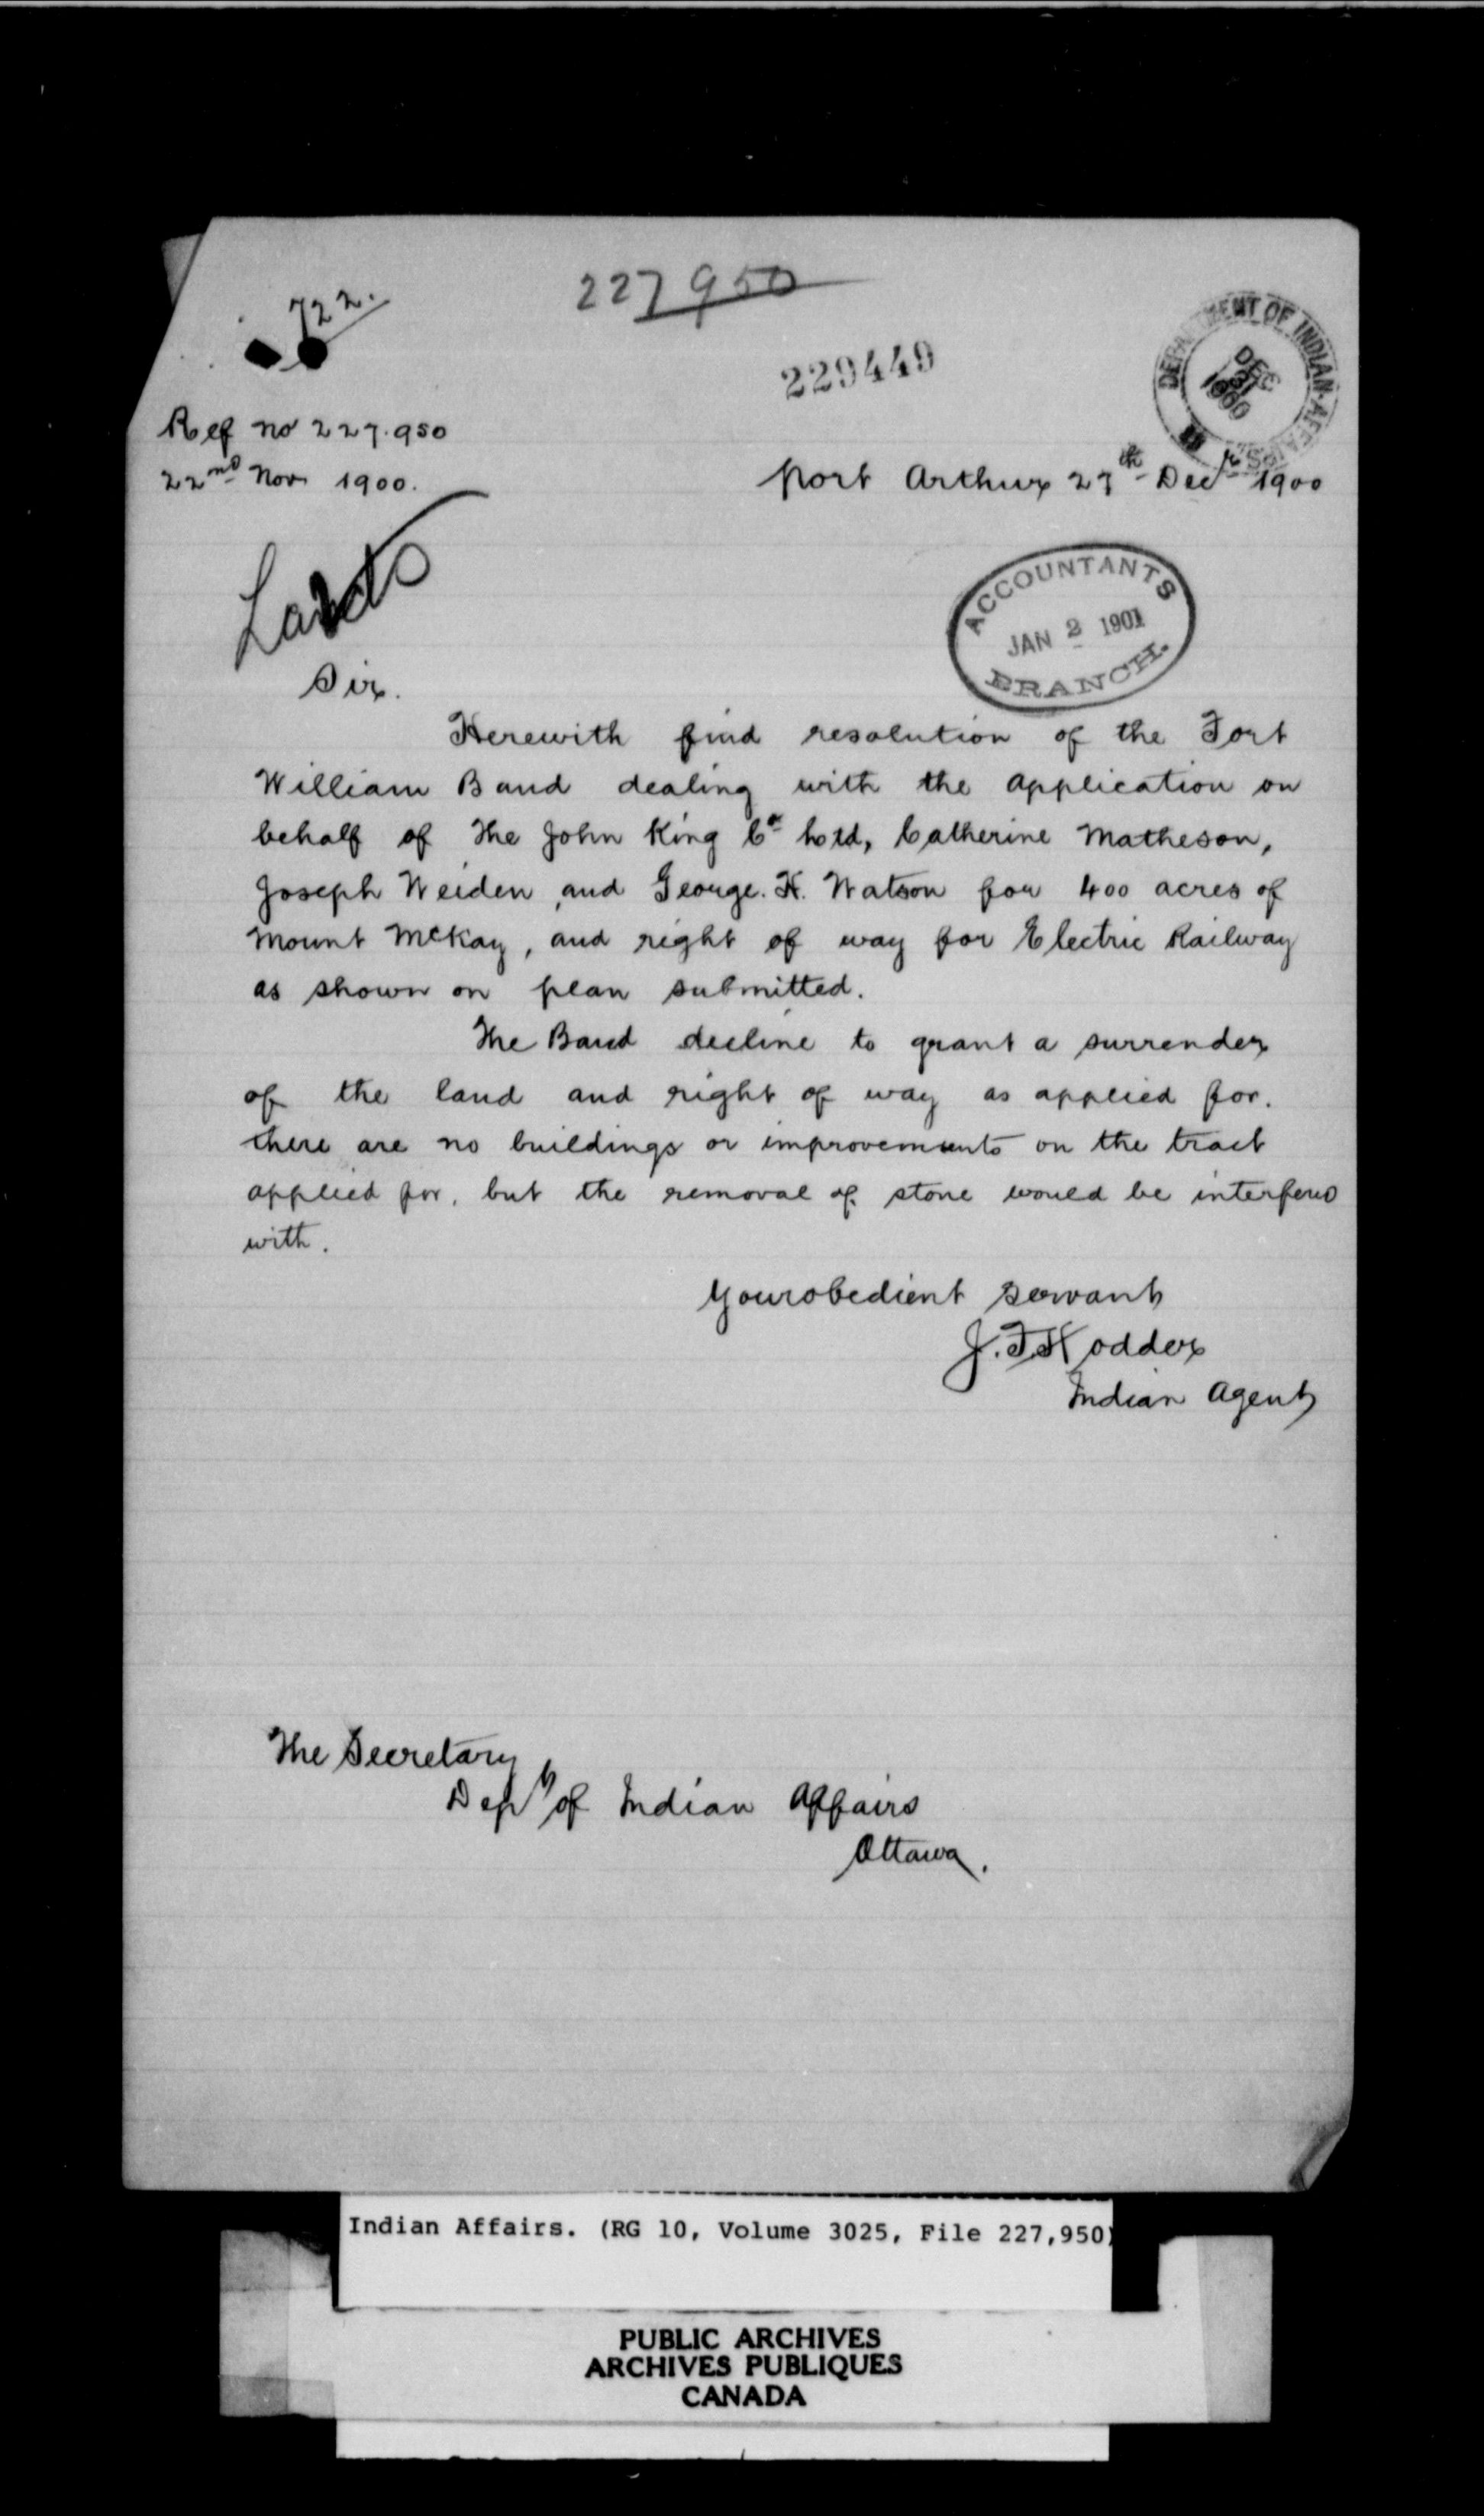 722.
227950
229449
DEPARTMENT OF INDIAN AFFAIRS
DEC 31 1900
Ref no 227.950
22nd Nov 1900.
Port Arthur 27th Decr 1900
Lands
ACCOUNTANTS
JAN 2 1901
BRANCH.
Sir.
Herewith find resolution of the Fort
William Band dealing with the application on
behalf of The John King Co Ltd, Catherine Matheson,
Joseph Weiden, and George. H. Watson for 400 acres of
Mount McKay, and right of way for Electric Railway
as shown on plan submitted.
The Band decline to grant a surrender
of the land and right of way as applied for.
there are no buildings or improvements on the tract
applied for, but the removal of stone would be interfered
with.
Your obedient servant
J. F. Hodder
Indian Agent
The Secretary
Dept of Indian Affairs
Ottawa.
Indian Affairs. (RG 10, Volume 3025, File 227,950)
PUBLIC ARCHIVES
ARCHIVES PUBLIQUES
CANADA